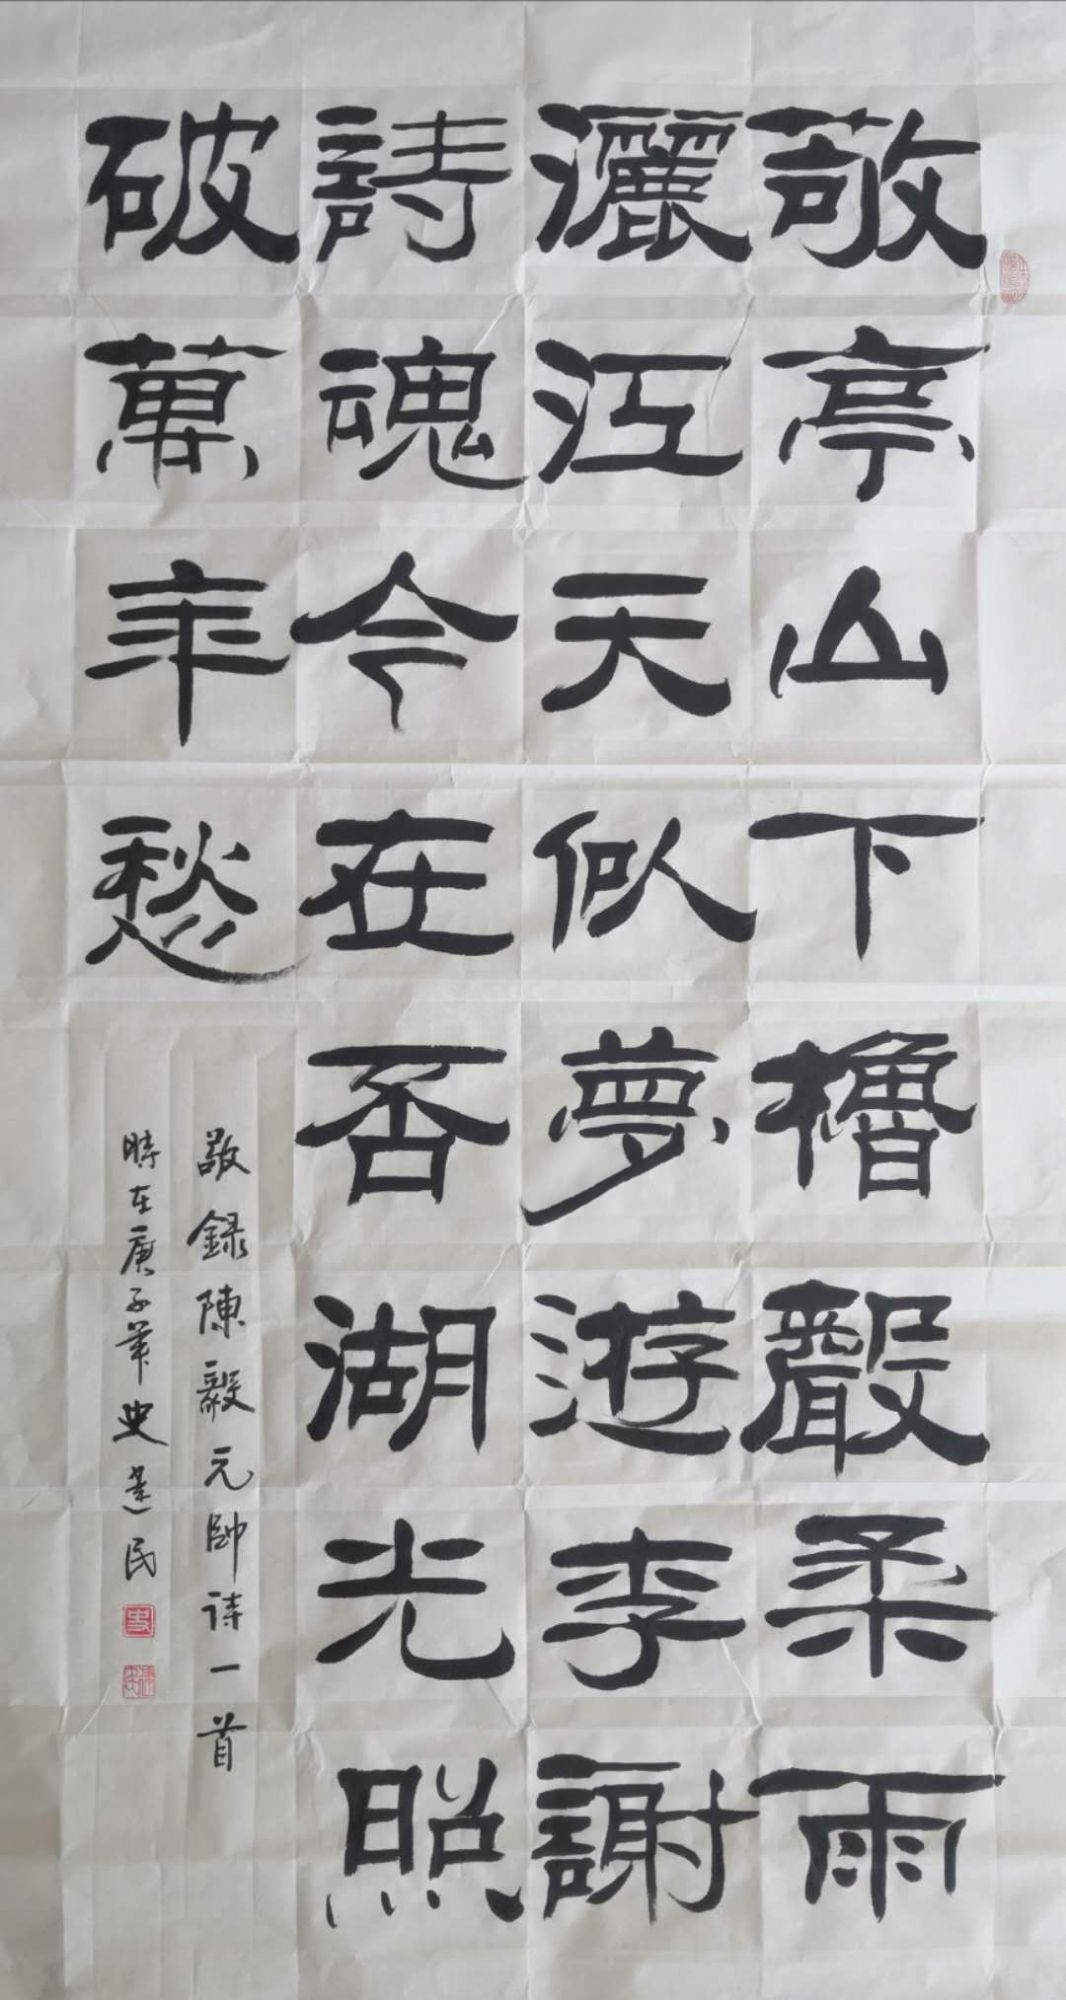 敬亭山下櫓聲柔雨
灑江天似夢遊李謝
詩魂今在否湖光照
破萬年愁
敬録陳毅元帥诗一首
時在庚子年史建民